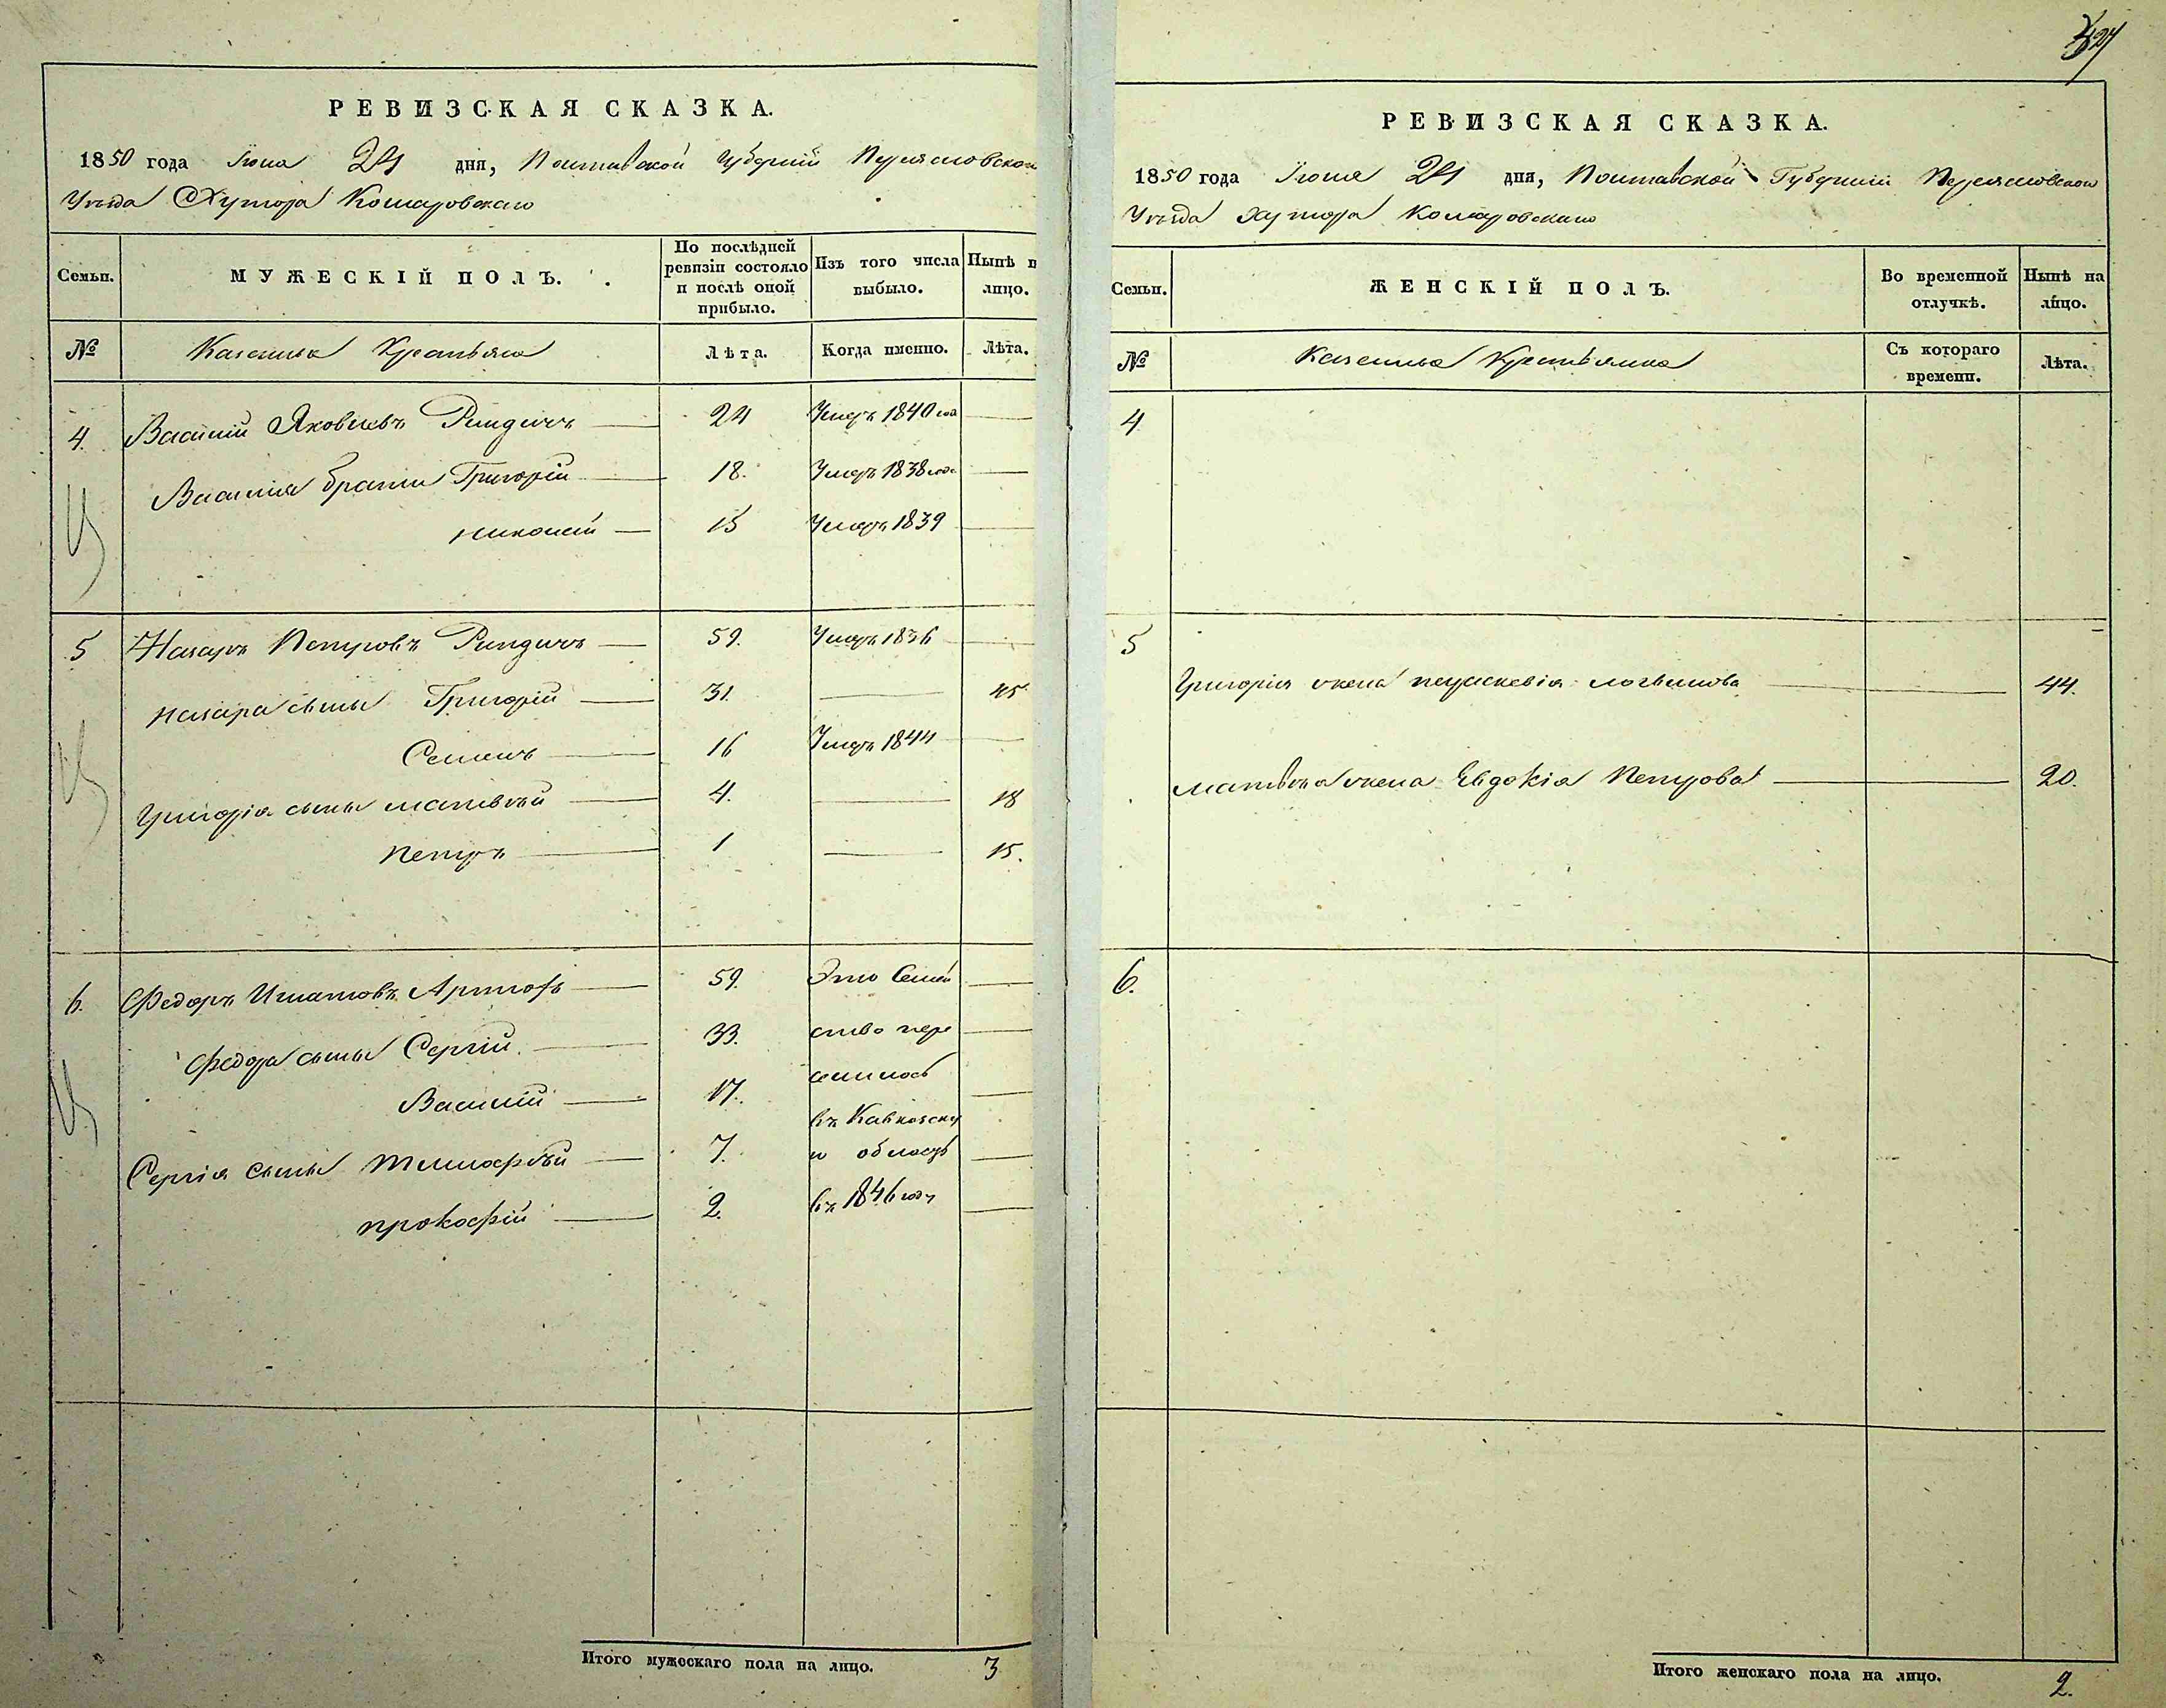 РЕВИЗСКАЯ СКАЗКА.
1850 года Іюня 24 дня, Полтавской Губерніи Переясловского
Уезда Хутора Комаровского
Семьи. МУЖЕСКІЙ ПОЛЪ. По послѣдней ревизіи состояло и послѣ оной прибыло. Изъ того числа выбыло. Нынѣ на лицо.
№ Казенные Крестьяне Лѣта. Когда именно. Лѣта.
4. Василій Яковлевъ Рындичъ 24 Умеръ 1840 года
Василія братья Григорій 18. Умеръ 1838 года
Николай 15 Умеръ 1839
5 Назаръ Петровъ Рындичъ 59. Умеръ 1836
Назара сыны Григорій 31. 45
Семенъ 16 Умеръ 1844
Григорія сыны Матвѣй 4. 18
Петръ 1 15.
6. Федоръ Игнатовъ 59. Это Семей
Федора сыны Сергій 33. ство пере
Василій 17. селилось
въ Кавказску
Сергія сыны Тимофѣй 7. ю область
Прокофій 2. въ 1846 году
Итого мужескаго пола на лицо. 3
РЕВИЗСКАЯ СКАЗКА.
1850 года Іюня 24 дня, Полтавской Губерніи Переясловского
Уезда Хутора Комаровского
Семьи. ЖЕНСКІЙ ПОЛЪ. Во временной отлучкѣ. Нынѣ на лицо.
№ Казенные Крестьянки Съ котораго времени. Лѣта.
4
5
Григорія жена Параскевія Логвинова 44.
Матвѣя жена Евдокія Петрова 20.
6.
Итого женскаго пола на лицо. 2.